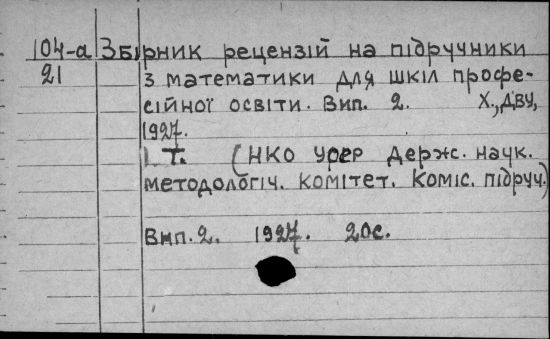 104-а Збірник рецензій на підручники
21 з математики для шкіл профе-
сійної освіти. Вип. 2. Х., ДВУ,
1927.
1 т. (НКО УРСР Держ. наук.
методологіч. комітет. Коміс. підруч.)
Вип. 2. 1927. 20с.